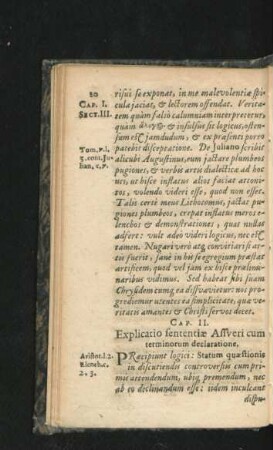 20
CAP. I.
SECT. III.
risui se exponat, in me malevolentiæ spi-
cula jaciat, & lectorem offendat. Verita-
tem quàm falsò calumniam interpretetur,
quàm & insulsus sit logicus, osten-
sum est jamdudum, & ex præsenti porrò
patebit disceptatione. De Juliano scribit
alicubi Augustinus, eum jactare plumbeos
pugiones, & verbis artis dialecticæ ad hoc
uti, ut bisce inflatus alios faciat attoni-
tos, volendo videri esse, quod non esset.
Talis certè meus Litbocomus, jactat pu-
giones plumbeos, crepat inflatus meros e-
lenchos & demonstrationes, quas nullas
adfert: vult adeò videri logicus, nec est
tamen. Nugari verò atq conviciari si ar-
tis fuerit, sanè in his se egregium præstat
artificem, quod vel jam ex hisce prælimi-
naribus vidimus. Sed habeat sibi suam
Chrysidem tumq ea dissuavietur: nos pro-
grediemur utentes ea simplicitate, qua ve-
ritatis amantes & Christi servos decet.
Tom. p. 1.
3. cont. Ju-
lian. c. 7.
CAP. II.
Explicatio sententiæ Assveri cum
terminorum declaratione.
Aristot. l. 2.
2. 3.
PRæcipiunt logici: Statum quæstionis
in discutiendis controversiis cum pri-
mis attendendum, ubiq premendum, nec
ab eo declinandum esse: idem inculcant
dispu-